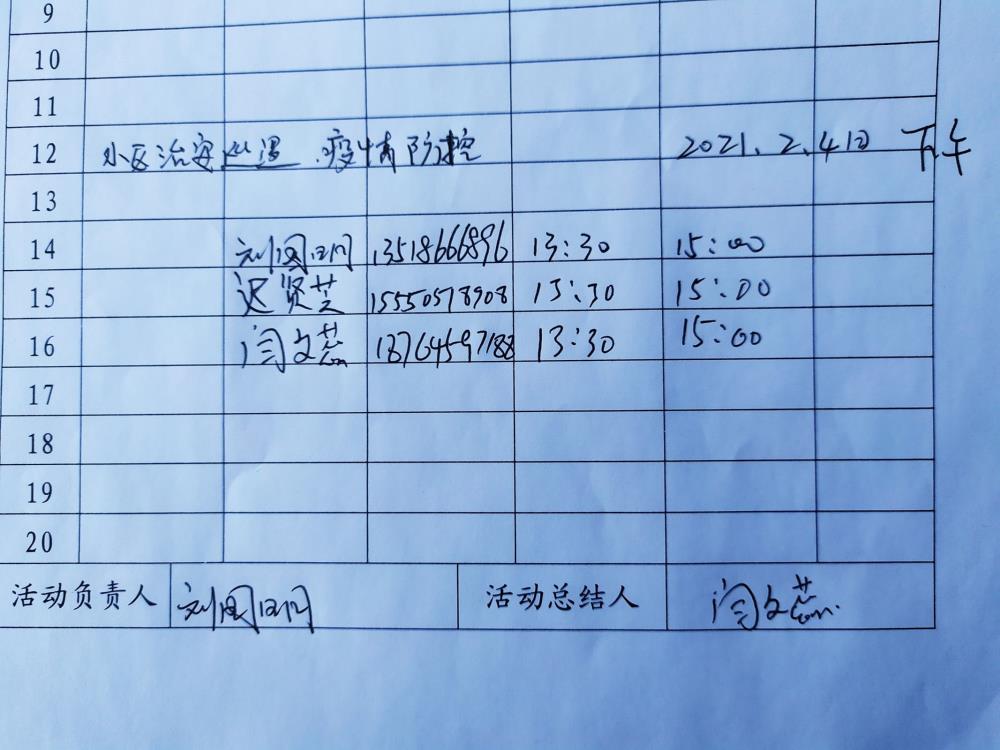 9
10
11
12 小区治安巡逻 疫情防控 2021.2.4日 下午
13
14 刘国明 13518666896 13:30 15:00
15 迟贤芝 15550578908 13:30 15:00
16 闫文蕊 18764597188 13:30 15:00
17
18
19
20
活动负责人 刘国明 活动总结人 闫文蕊